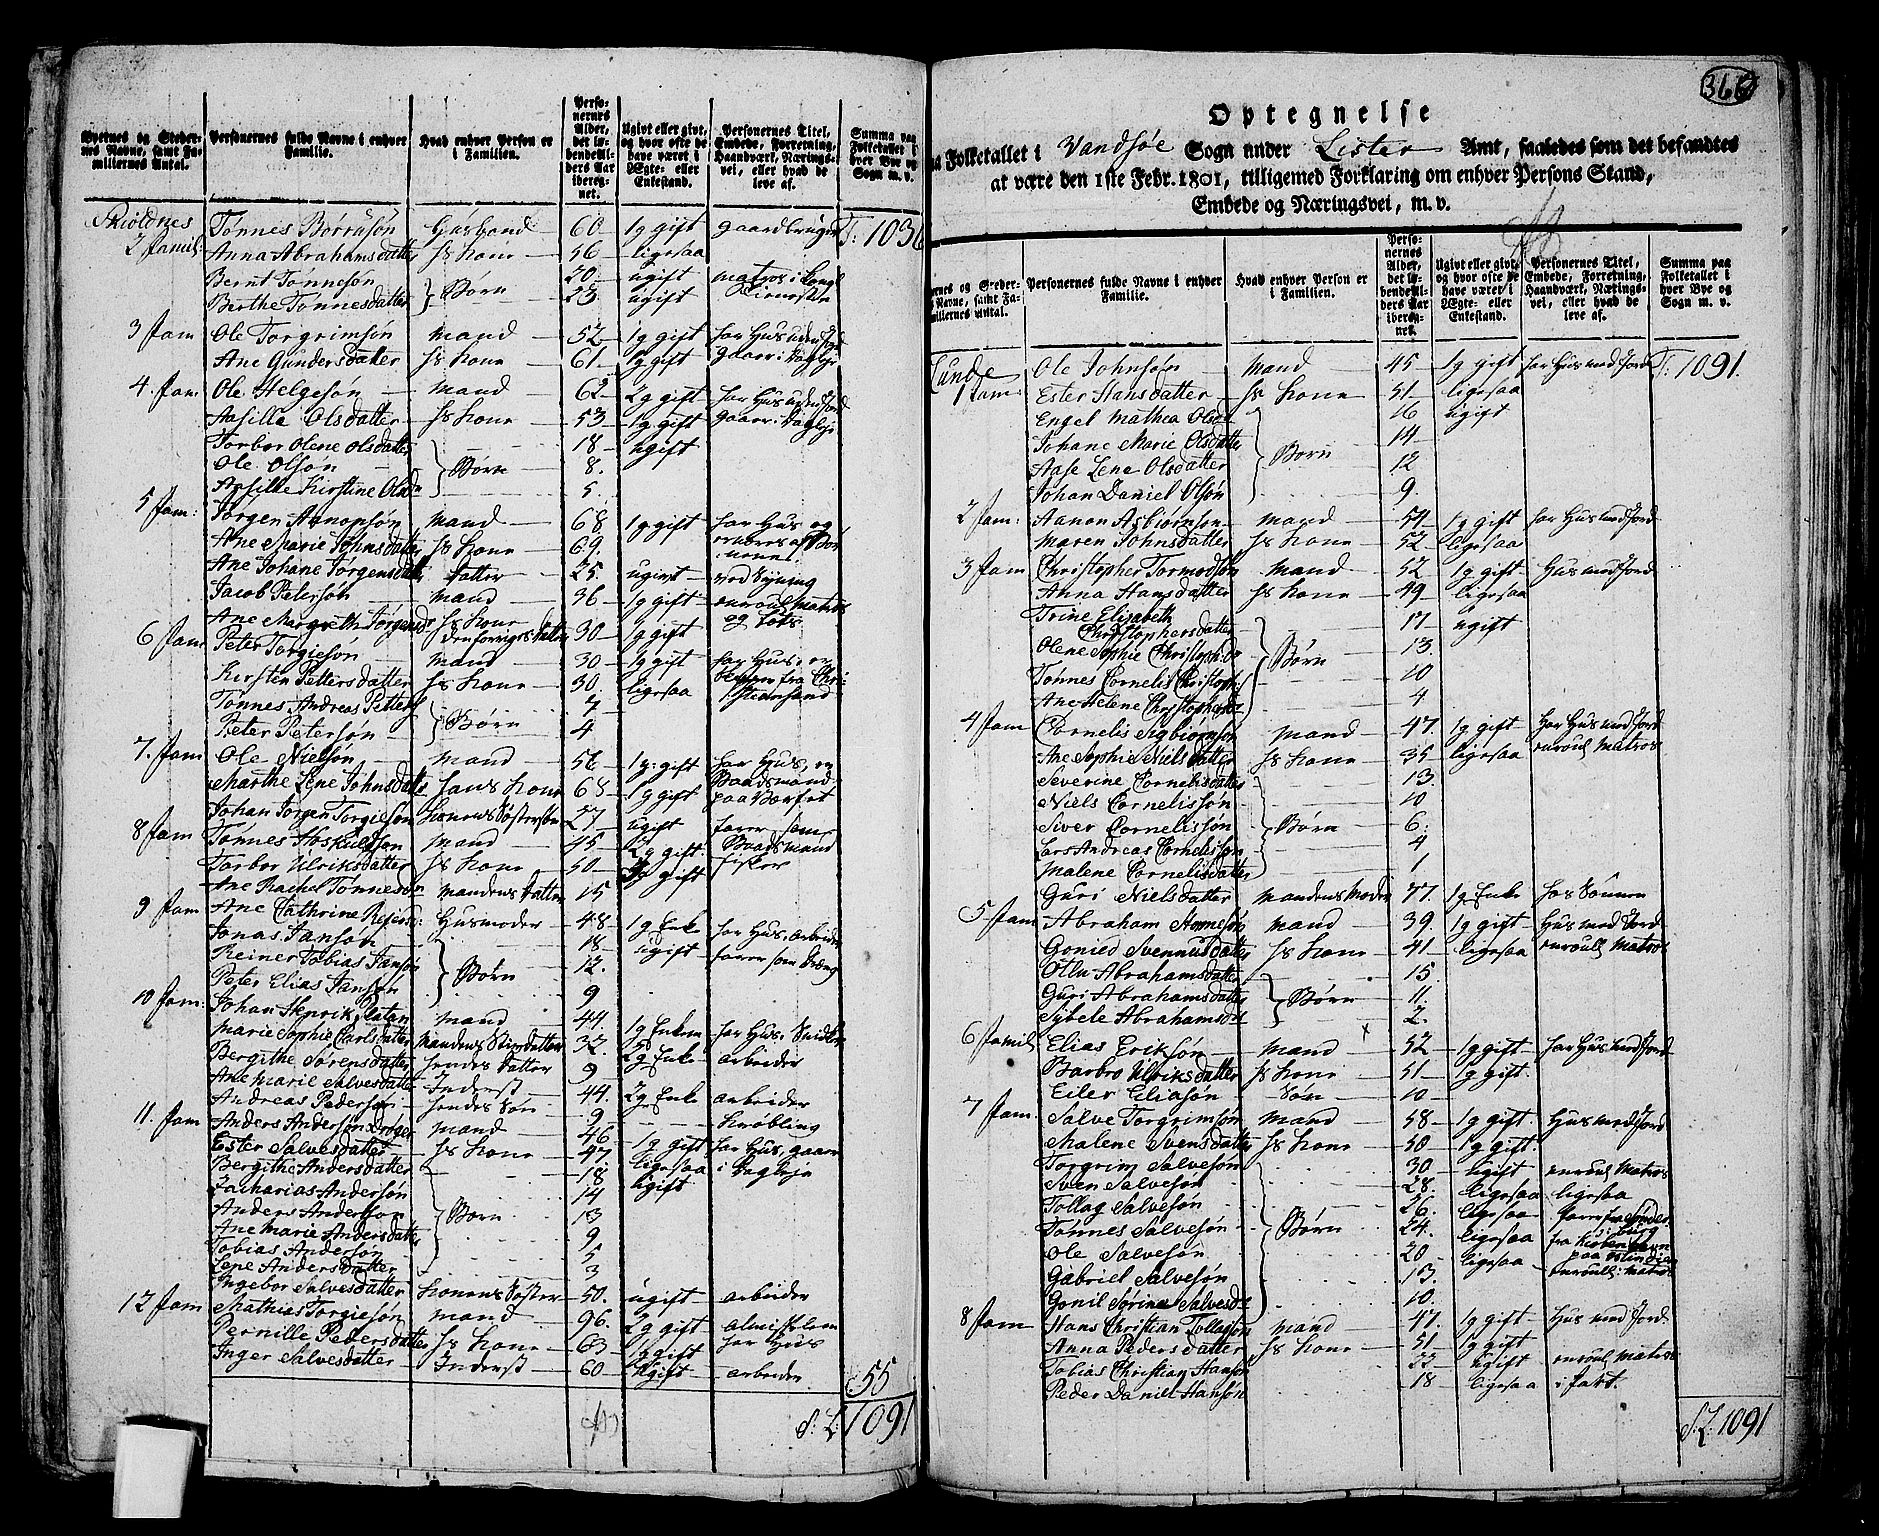 Byernes og Steder-
nes Navne, samt Fa-
miliernes Antal.
Personernes fulde Navne i enhver
Familie.
Hvad enhver Person er
i Familien.
Perso-
nernes
Alder,
det lø-
bendeAl-
ders Aar
ibereg-
net.
Ugivt eller givt,
og hvor ofte de
have været i
Ægte- eller
Enkestand.
Personernes Titel,
Embede, Forretning,
Haandværk, Nærings-
vei, eller hvad de
leve af.
Summa paa
Folketallet i
hver Bye og
Sogn m. v.
Skioldnes Tønnes Børresøn Huusbond 60 1g gift gaardbruger T: 1036
2 famil: Anna Abrahamsdatter hs Kone 56 ligesaa
Bernt Tønnesøn 20 ugift
Berthe Tønnesdatter Børn 23 ugift
3 fam Ole Torgrimsøn mand 52 1g gift har Huus uden Jord
Ane Gundersdatter hs Kone 61 1g gift
4. fam Ole Helgesøn mand 62 2g gift har Huus uden Jord
Aasille Olsdatter hs Kone 53 1g gift
Torbor Olene Olsdatter 18 ugift
Ole Olsøn Børn 8.
Aasille Kirstine Olsd 5.
5 fam: Jørgen Aanonsøn mand 68 1g gift har Hus og
Ane Marie Johnsdatter hs Kone 69.
Ane Johane Jørgensdatter datter 25. ugivt ved Syning
Jacob Petersøn mand 36 1g gift enroul. Matros
Ane Margreth Jørgensd hs Kone og Lots
6 fam Den forriges datter 30 1g gift
Peter Torgiesøn mand 30 1g gift har Hus, er
Kirstin Pettersdatter hs Kone 30. ligesaa
Tønnes Andreas Petters 7
Peter Petersøn Børn 4
7. fam Ole Nielsøn mand 52 1g: gift har Hus, en
Marthe Lene Johnsdatter hans Kone 68 1g gift Baadsmand
Johan Jørgen Torgiesøn Konens Søstersøn 27 ugift farer som
8 fam Tønnes Hoskuldsøn mand 45 2g gift. Baadsmand
Torbor Ulriksdatter hs Kone 50 gift fisker
Ane Rachel Tønnesd mandens datter 15
9 fam Ane Cathrine Husmoder 48 1g Enke har Hus, arbeider
Jonas Jansøn 18 ugift
Reiner Tobias Jansøn Børn 12.
Peter Elias Jansøn 9
10 fam: Johan Henrik Platan mand 44. 1g Enkm har Hus
Marie Sophie Carlsdatter 32. 2g Enke arbeider
Bergithe Sørensdatter hendes datter 9
Ane Marie Salvesdatter Inderst 44. 2g Enke arbeider
Andreas Pedersøn hendes Søn 9 Krøbling
11. fam Anders Andersøn mand 46 1g gift har Hus, gaaer
Ester Salvesdatter hs Kone 47 ligesaa
Bergithe Andersdatter 18 ugift
Zacharias Andersøn 14
Anders Andersøn Børn 13
Ane Marie Andersdatter 9
Tobias Andersøn 5
Lene Andersdatter 3
Ingebor Salvesdatter Konens Søster 50. ugift arbeider
12 fam Mathias Torgiesøn mand 96. 2g gift
Pernille Pedersdatter hs Kone 63 1g gift har Hus
Inger Salvesdatter Inderst 60 ugift arbeider
55
1091
366
Optegnelse
Folketallet i Vandsøe Sogn under Lister Amt, saaledes som det befandtes
at være den 1ste Febr. 1801, tilligemed Forklaring om enhver Persons Stand,
Embede og Næringsvei, m. v.
Personernes fulde Navne i enhver
Familie.
Hvad enhver Person er
i Familien.
Perso-
nernes
Alder,
det lø-
bendeAl-
ders Aar
ibereg-
net.
Ugivt eller givt,
og hvor ofte de
have været i
Ægte- eller
Enkestand.
Personernes Titel,
Embede, Forretning,
Haandværk, Nærings-
vei, eller hvad de
leve af.
Summa paa
Folketallet i
hver Bye og
Sogn m. v.
Lunde Ole Johnsøn mand 45 1g gift har Hus med Jord T: 1091.
1 fam Ester Hansdatter hs Kone 51 ligesaa
Engel Mathea Olsd 16 ugift
Johane Marie Olsdatter 14
Aase Lene Olsdatter Børn 12
Johan Daniel Olsøn 9.
2 fam: Aanon Asbiørnsøn mand 54 1g gift har Hus med Jord
Maren Johnsdatter hs Kone 52 ligesaa
3 fam Christopher Tormodsøn mand 52 1g gift Hus med Jord
Anna Hansdatter hs Kone 49 ligesaa
Trine Elisabeth
Christophersdatter 17 ugift
Olene Sophie Christophd 13
Tønnes Cornelis Christoph: Børn 10
Ane Helene Christophersd 4
4 fam Cornelis Sigbiørnsøn mand 47. 1g gift har Hus med Jord
Ane Sophie Nielsdatter hs Kone 35 ligesaa enroul Matros
Severine Cornelisdatter 13.
Niels Cornelissøn 10
Siver Cornelissøn Børn 6.
Lars Andreas Cornelissøn 4
Malene Cornelisdatter 1
Guri Nielsdatter mandens Moder 77. 1g Enke hos Sønnen
5 fam Abraham mand 39. 1g gift Hus med Jord
Gonied Svennusdatter hs Kone 41 ligesaa enroull Matros
Abrahamsdatter 15
Guri Abrahamsdatter Børn 11.
Sybele Abrahamsd 2.
6 famil Elias Eriksøn mand 52 1g gift har Hus med Jord
Barbro Ulriksdatter hs Kone 51 g gift.
Eiler Eliasøn Søn 10
7 fam. Salve Torgrimsøn mand 58 1g gift Hus med Jord
Malene Svensdatter hs Kone 50 1g gift.
Torgrim Salvesøn 30 ugift enroul Matros
Sven Salvesøn 28 ligesaa ligesaa
Tollag Salvesøn 26. ligesaa
Tønnes Salvesøn Børn 24. ligesaa fra Kiøbenhavn
Ole Salvesøn 20 ligesaa paa Ostindien
Gabriel Salvesøn 13. enroull: Matros
Gonil Sørine Salvesd 10.
8 fam Hans Christian Tollagsøn mand 47. 1g gift Hus med Jord
Anna Pedersdatter hs Kone 51 1g gift
Tobias Christian Hansøn 22 ugift enroul Matros
Peder Daniel Hansøn 18 ligesaa i fart.
1091